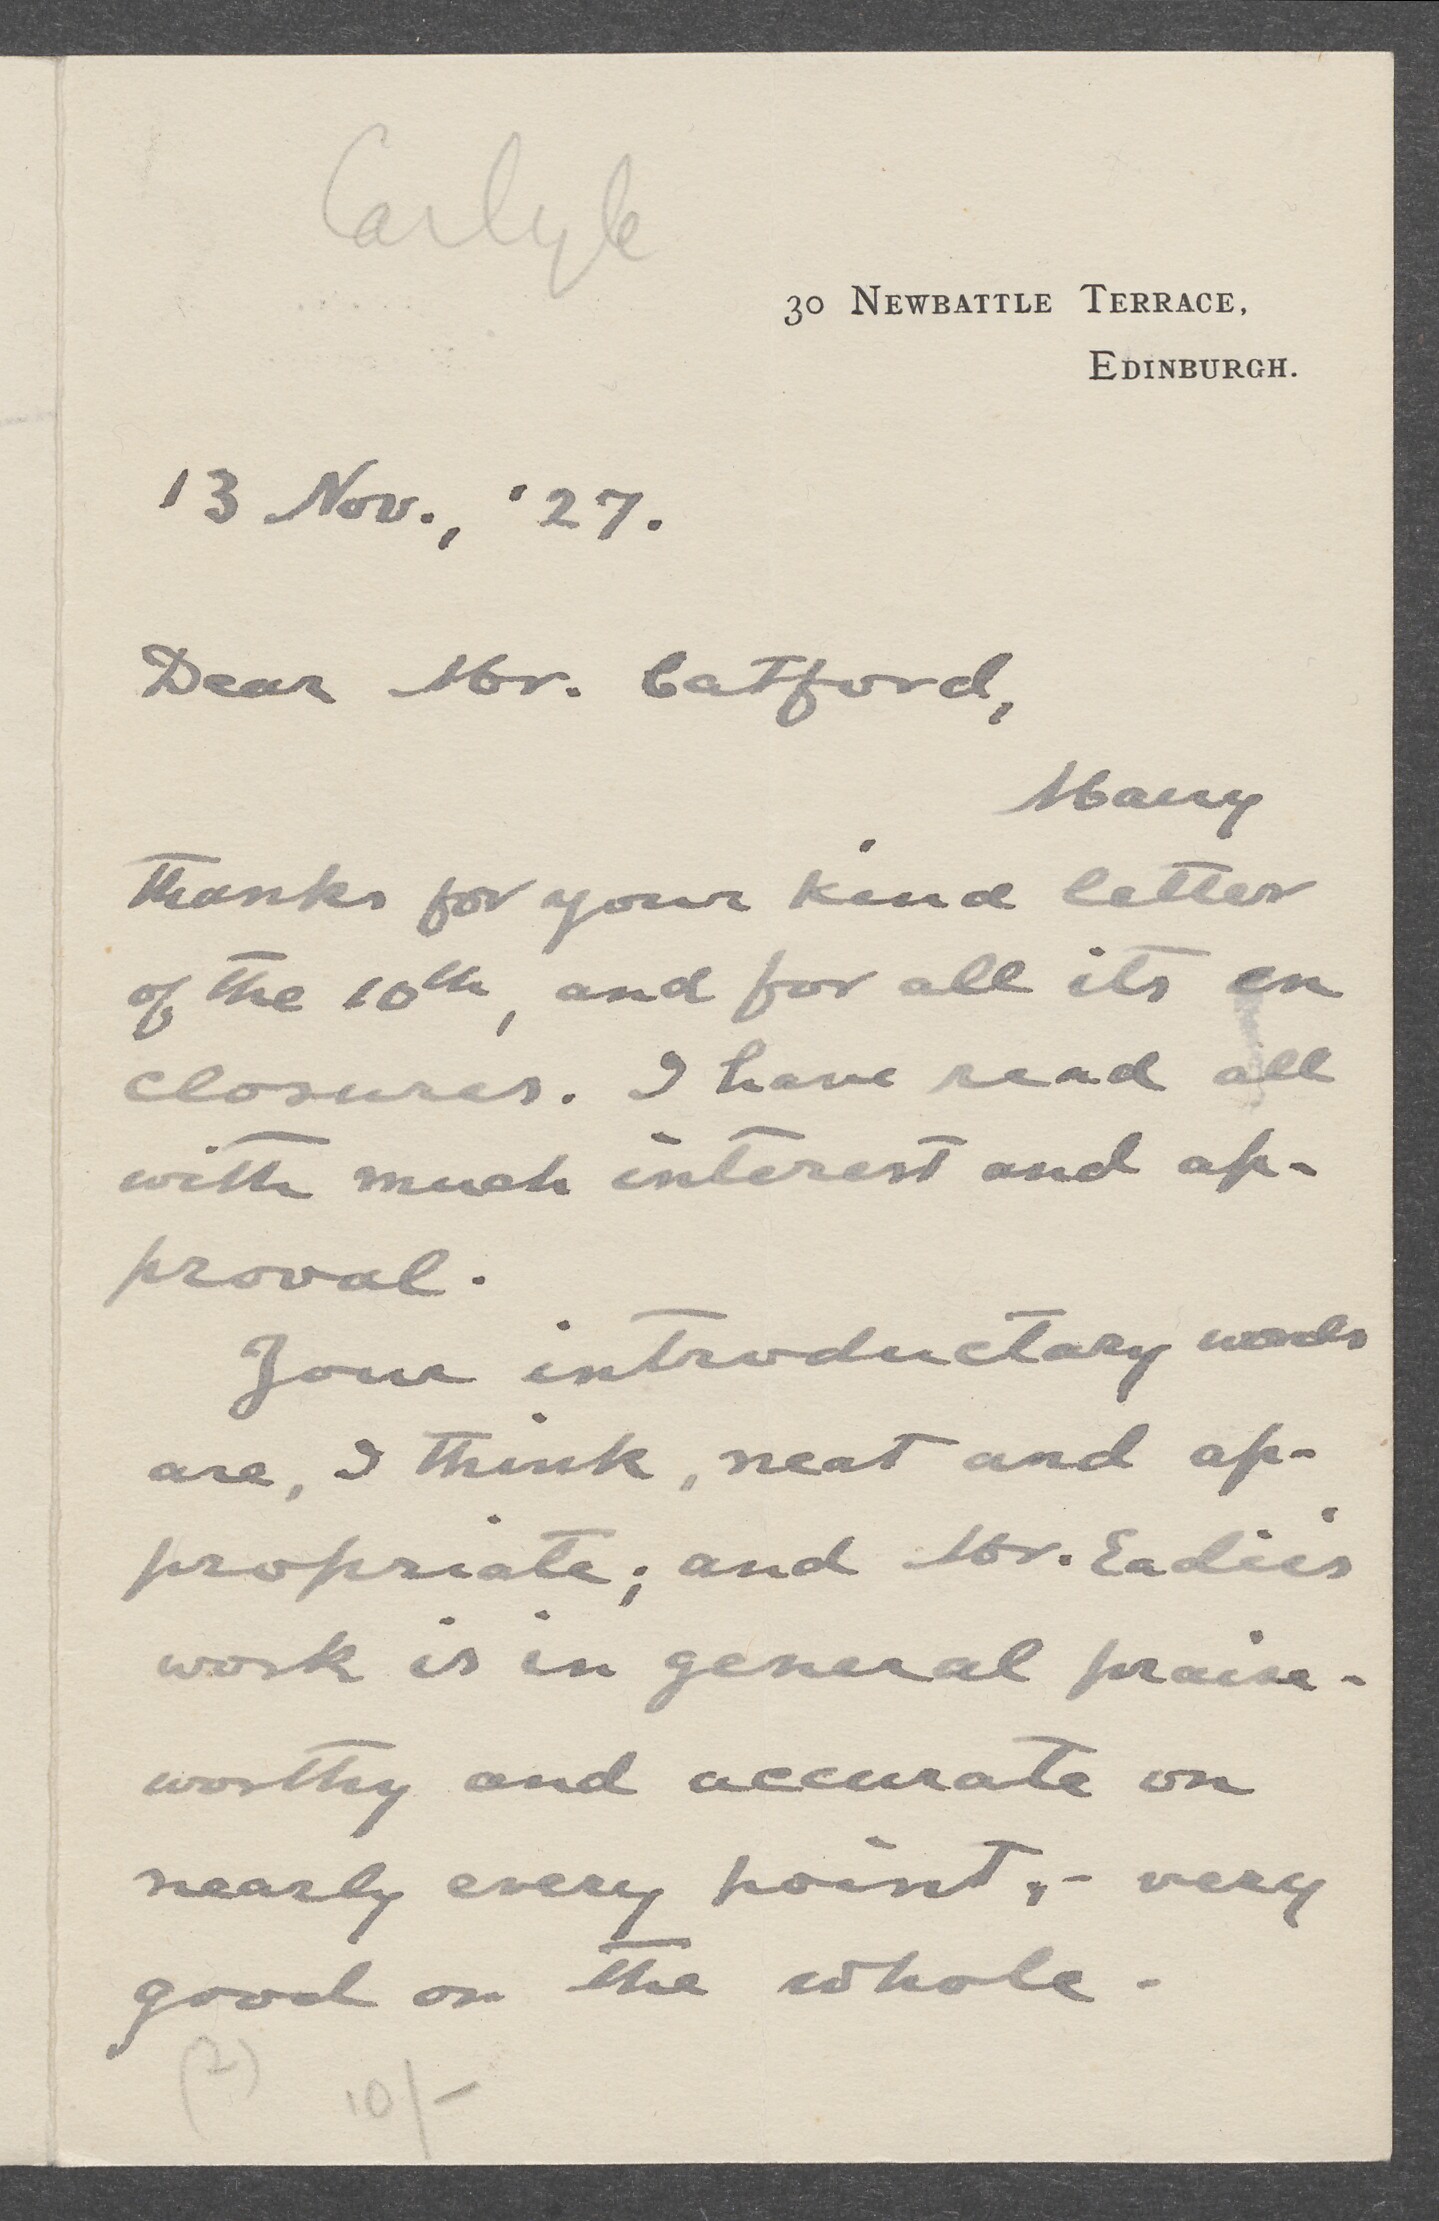 Carlyle
30 NEWBATTLE TERRACE,
EDINBURGH.
13 Nov., '27.
Dear Mr. Catford,
Many
thanks for your kind letter
of the 10th, and for all its en
closures. I have read all
with much interest and ap-
proval.
Your introductory words
are, I think, neat and ap-
propriate; and Mr. Eadie's
work is in general praise-
worthy and accurate on
nearly every point, - very
good on the whole.
(2) 10/-